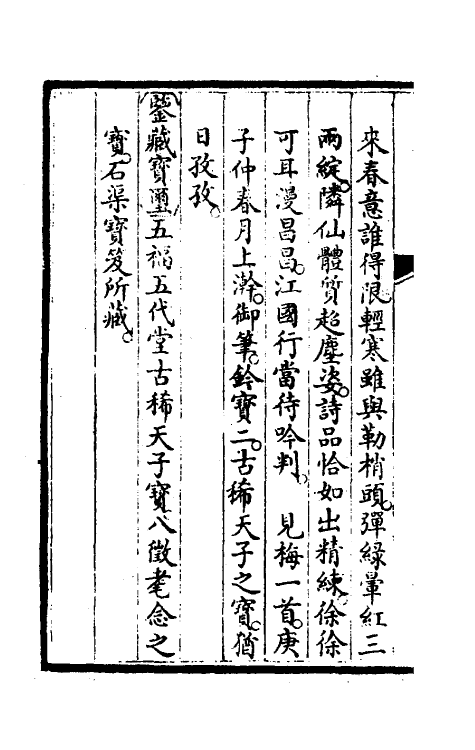 來春意誰得限輕寒雖與勒梢頭彈綠暈紅三
兩綻隣仙體質超塵姿詩品恰如出精練徐徐
可耳漫昌昌江國行當待吟判　見梅一首庚
子仲春月上澣御筆鈐寶二古稀天子之寶猶
日孜孜
鑒藏寶璽五福五代堂古稀天子寶八徵耄念之
寶石渠寶笈所藏